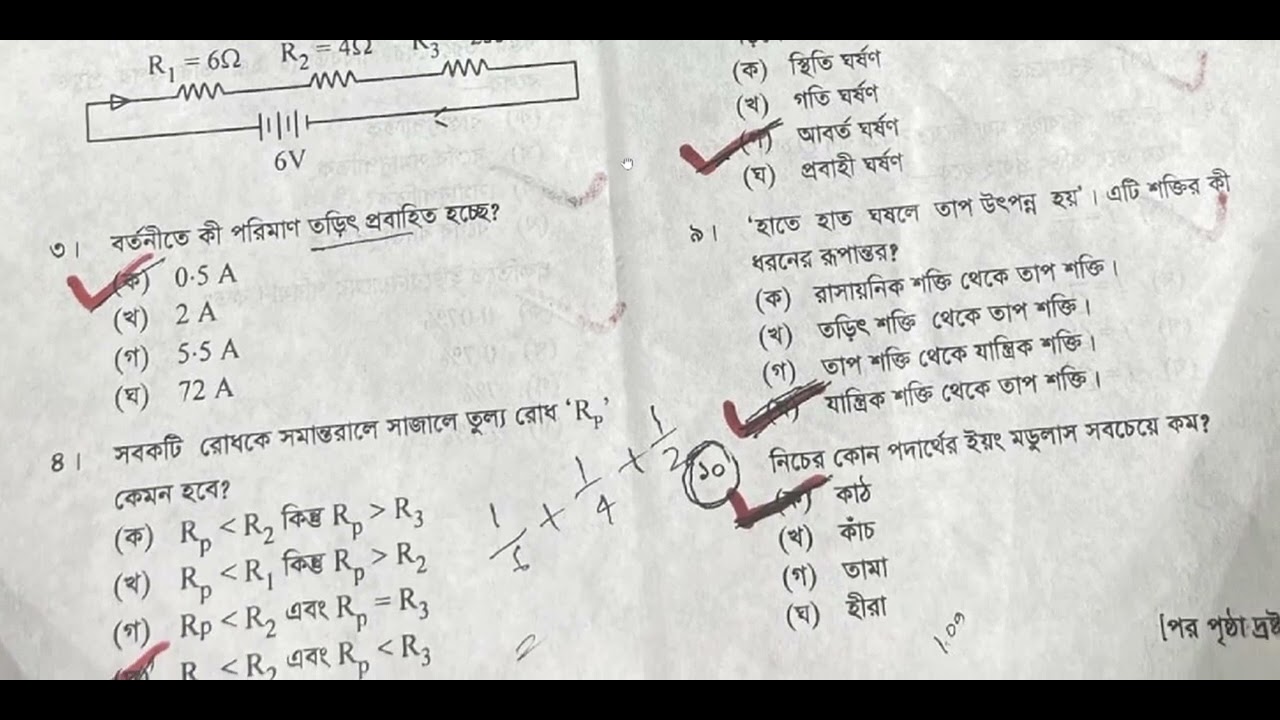 R₁ = 6Ω R₂ = 4Ω R₃
6V
৩। বর্তনীতে কী পরিমাণ তড়িৎ প্রবাহিত হচ্ছে?
(ক) 0.5 A
(খ) 2 A
(গ) 5.5 A
(ঘ) 72 A
৪। সবকটি রোধকে সমান্তরালে সাজালে তুল্য রোধ ‘Rₚ’
কেমন হবে?
(ক) Rₚ < R₂ কিন্তু Rₚ > R₃
(খ) Rₚ < R₁ কিন্তু Rₚ > R₂
(গ) Rp < R₂ এবং Rₚ = R₃
R < R₂ এবং Rₚ < R₃
1/6 + 1/4 + 1/2
(ক) স্থিতি ঘর্ষণ
(খ) গতি ঘর্ষণ
(গ) আবর্ত ঘর্ষণ
(ঘ) প্রবাহী ঘর্ষণ
৯। ‘হাতে হাত ঘষলে তাপ উৎপন্ন হয়’। এটি শক্তির কী
ধরনের রূপান্তর?
(ক) রাসায়নিক শক্তি থেকে তাপ শক্তি।
(খ) তড়িৎ শক্তি থেকে তাপ শক্তি।
(গ) তাপ শক্তি থেকে যান্ত্রিক শক্তি।
যান্ত্রিক শক্তি থেকে তাপ শক্তি।
১০ নিচের কোন পদার্থের ইয়ং মডুলাস সবচেয়ে কম?
কাঠ
(খ) কাঁচ
(গ) তামা
(ঘ) হীরা
[পর পৃষ্ঠা